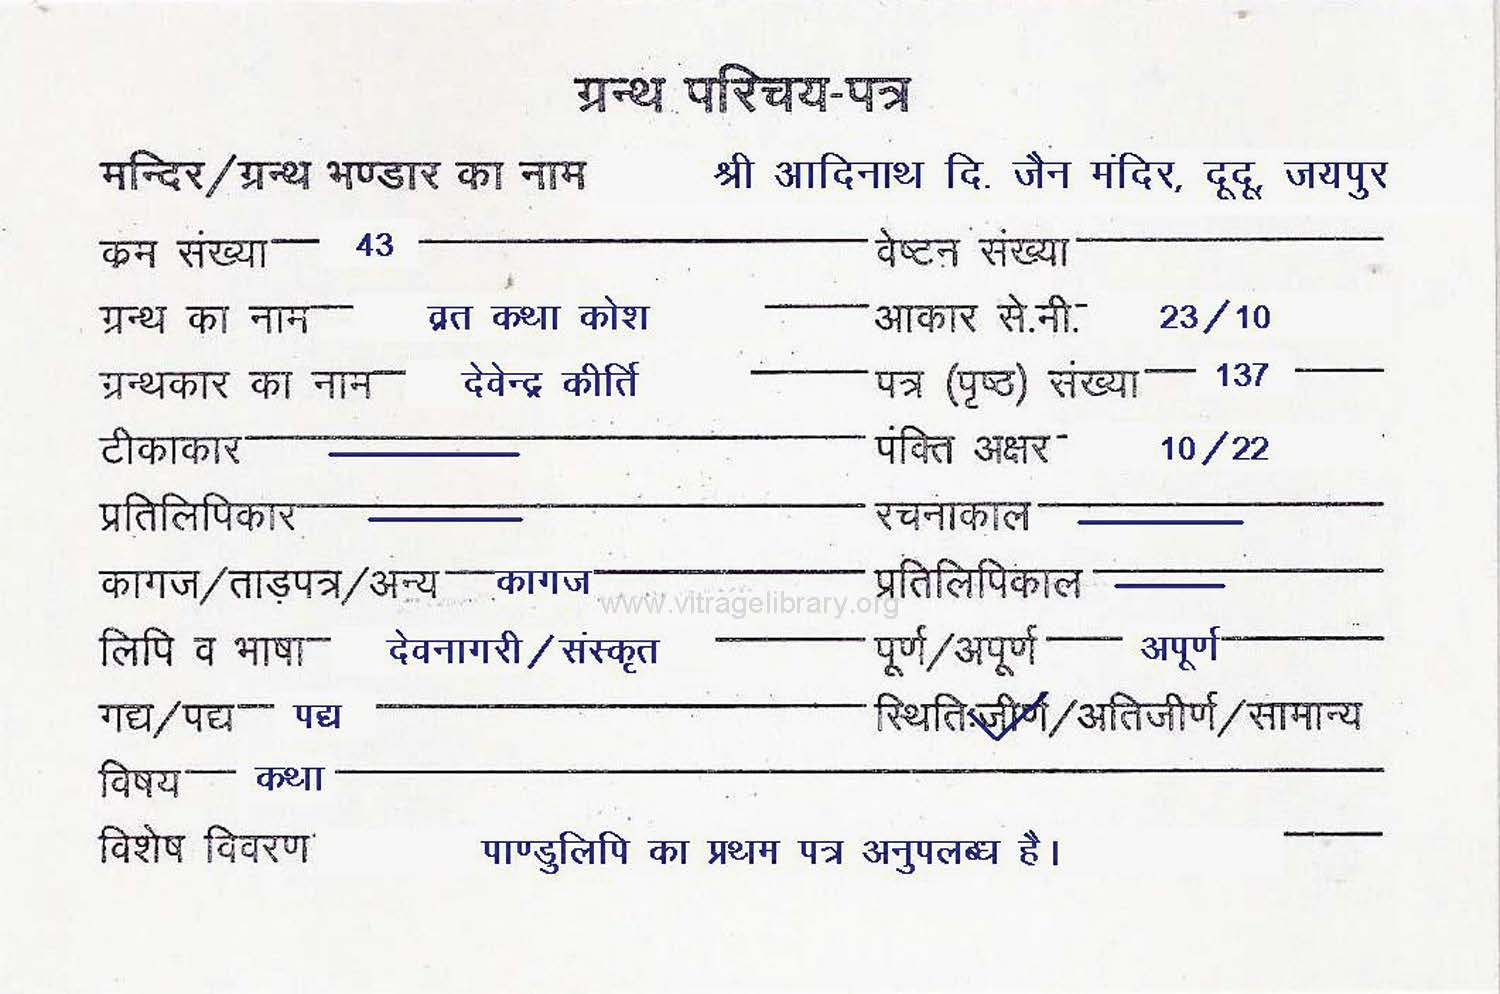 ग्रन्थ परिचय-पत्र
मन्दिर/ग्रन्थ भण्डार का नाम श्री आदिनाथ दि. जैन मंदिर, दूदू, जयपुर
क्रम संख्या 43 वेष्टन संख्या
ग्रन्थ का नाम व्रत कथा कोश आकार से.मी. 23/10
ग्रन्थकार का नाम देवेन्द्र कीर्ति पत्र (पृष्ठ) संख्या 137
टीकाकार पंक्ति अक्षर 10/22
प्रतिलिपिकार रचनाकाल
कागज/ताड़पत्र/अन्य कागज प्रतिलिपिकाल
www.vitragelibrary.org
लिपि व भाषा देवनागरी/संस्कृत पूर्ण/अपूर्ण अपूर्ण
गद्य/पद्य पद्य स्थिति:जीर्ण/अतिजीर्ण/सामान्य
विषय कथा
विशेष विवरण पाण्डुलिपि का प्रथम पत्र अनुपलब्ध है।